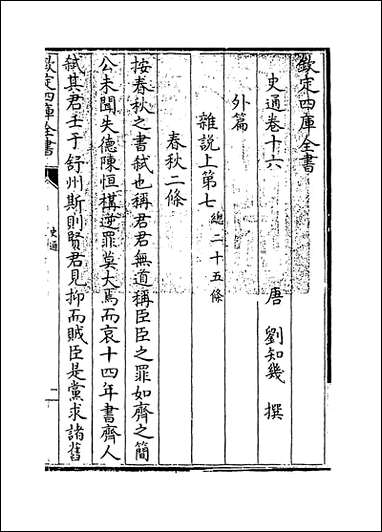 欽定四庫全書
史通卷十六
唐 劉知幾 撰
外篇
雜說上第七 總二十五條
春秋二條
按春秋之書弑也稱君君無道稱臣臣之罪如齊之簡
公未聞失德陳恒構逆罪莫大焉而哀十四年書齊人
弑其君壬于舒州斯則賢君見抑而賊臣是黨求諸舊
欽定四庫全書
史通